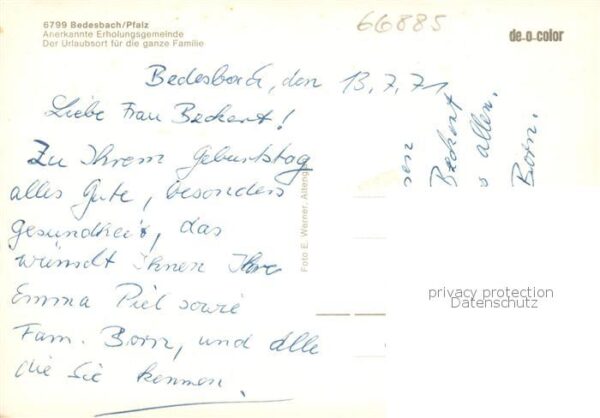 6799 Bedesbach/Pfalz
Anerkannte Erholungsgemeinde
Der Urlaubsort für die ganze Familie
66885
de-o-color
Bedesbach, den 13.7.71
Liebe Frau Beckert!
Zu Ihrem Geburtstag
alles Gute, besonders
gesundheit, das
wünscht Ihnen Ihre
Emma Piel sowie
Fam. Born, und alle
die Sie kennen.
Foto E. Werner, Alteng
Beckert
allen.
Born.
privacy protection
Datenschutz